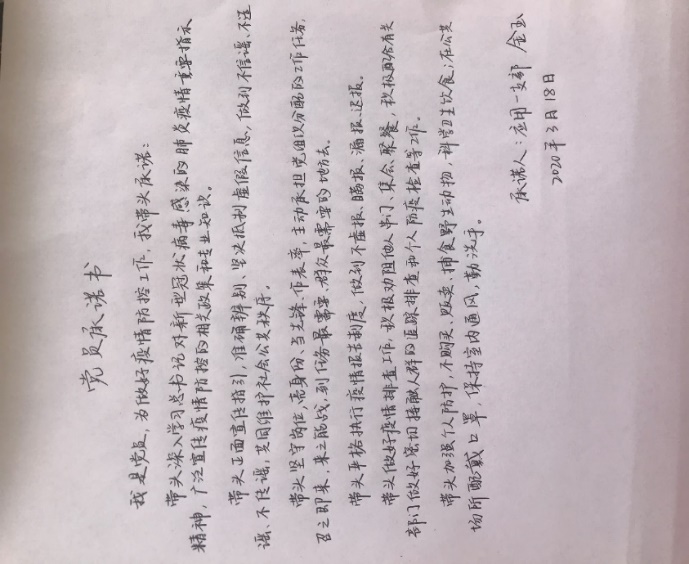 党员承诺书
我是党员，为做好疫情防控工作，我带头承诺：
带头深入学习总书记对新型冠状病毒感染的肺炎疫情重要指示
精神，广泛宣传疫情防控的相关政策和专业知识。
带头正面宣传指引，准确辨别、坚决抵制虚假信息，做到不信谣、不造
谣、不传谣，共同维护社会公共秩序。
带头坚守岗位，亮身份、当先锋、作表率，主动承担党组织分配的工作任务，
召之即来，来之能战，到任务最需要、群众最需要的地方去。
带头严格执行疫情报告制度，做到不虚报、瞒报、漏报、迟报。
带头做好疫情排查工作，积极劝阻他人串门、集会、聚餐，积极配合有关
部门做好密切接触人群的追踪排查和个人防疫检查等工作。
带头加强个人防护，不购买、贩卖、捕食野生动物，科学卫生饮食，在公共
场所配戴口罩，保持室内通风，勤洗手。
承诺人：应用一支部 金玉
2020年3月18日